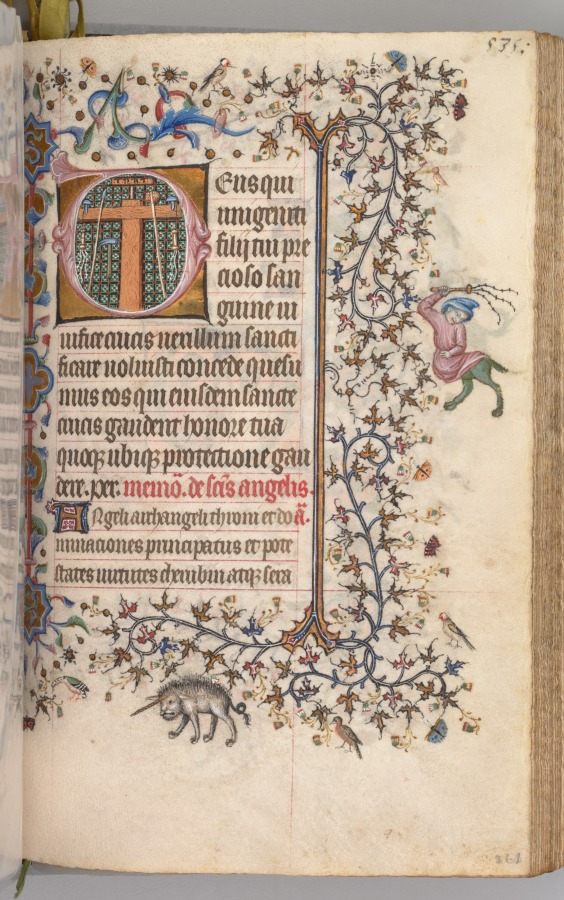 535.
Deus qui
unigeniti
filij tui pre
cioso san
guine vi
uifice crucis vexillum sancti
ficare uoluisti concede quesu
mus eos qui eiusdem sancte
crucis gaudent honore tua
quoqz ubiqz protectione gau
dere. per. memo. de scis angelis.
Angeli archangeli throni et do a.
minaciones principatus et pote
states uirtutes cherubin atqz sera
261